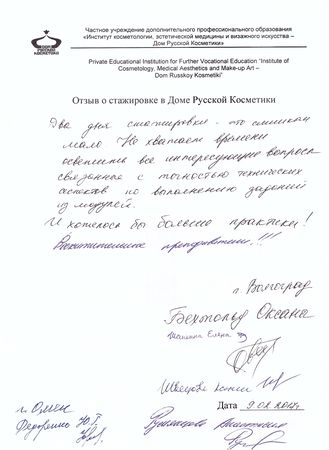 Частное учреждение дополнительного профессионального образования
«Институт косметологии, эстетической медицины и визажного искусства –
Дом Русской Косметики»
Private Educational Institution for Further Vocational Education "Institute of
Cosmetology, Medical Aesthetics and Make-up Art –
Dom Russkoy Kosmetiki"
Отзыв о стажировке в Доме Русской Косметики
Два дня стажировки - это слишком
мало. Не хватает времени
осветить все интересующие вопросы
связанные с точностью технических
аспектов по выполнению заданий
из модулей.
И хотелось бы больше практики!
Восхитительные преподаватели!!!
г. Волгоград
Бехтольд Оксана
Елена
г. Омск
Федоренко Ю.Г.
Дата 9.02.2018г